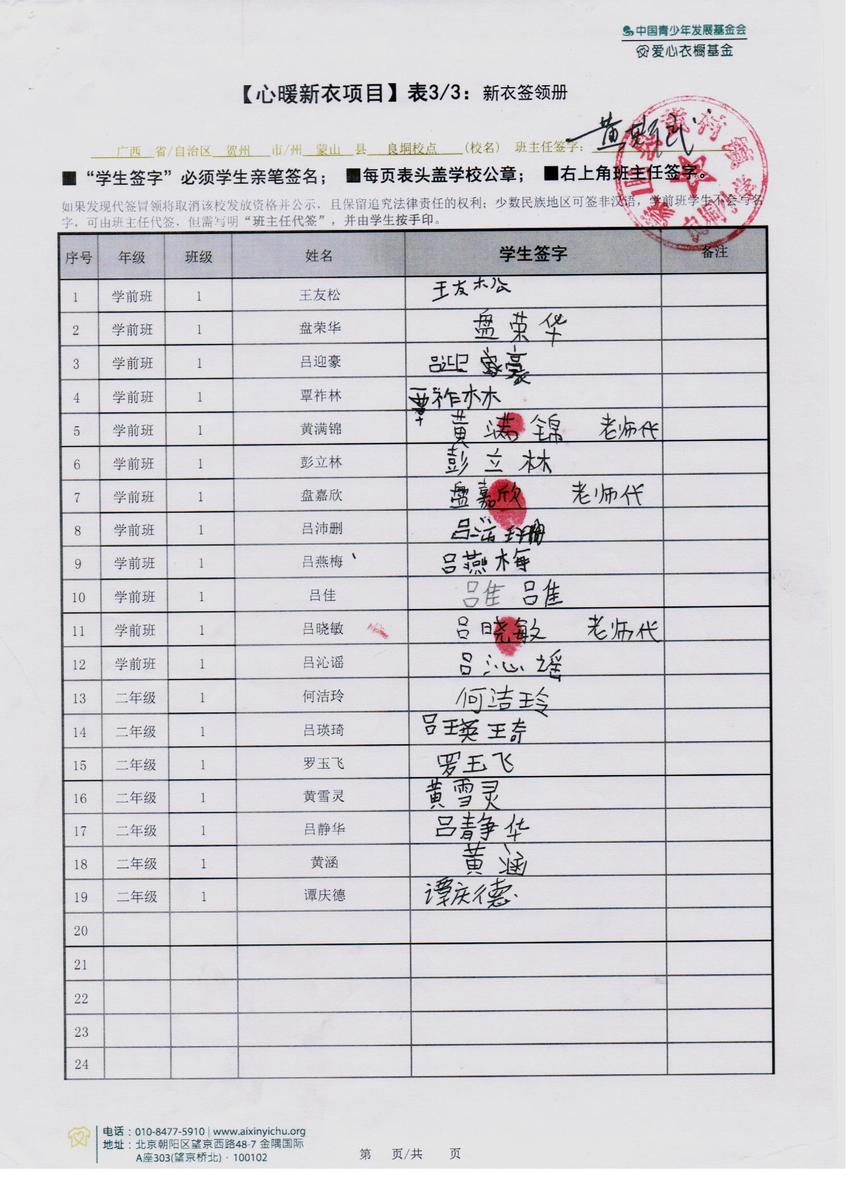 中国青少年发展基金会
爱心衣橱基金
【心暖新衣项目】表3/3：新衣签领册
广西 省/自治区 贺州 市/州 蒙山 县 良垌校点 （校名） 班主任签字：
■“学生签字”必须学生亲笔签名；■每页表头盖学校公章；■右上角班主任签字。
如果发现代签冒领将取消该校发放资格并公示，且保留追究法律责任的权利；少数民族地区可签非汉语，学前班学生不会写名
字，可由班主任代签，但需写明“班主任代签”，并由学生按手印。
序号 年级 班级 姓名 学生签字 备注
1 学前班 1 王友松 王友松
2 学前班 1 盘荣华 盘荣华
3 学前班 1 吕迎豪 吕迎豪
4 学前班 1 覃祚林 覃祚林
5 学前班 1 黄满锦 黄满锦 老师代
6 学前班 1 彭立林 彭立林
7 学前班 1 盘嘉欣 盘嘉欣 老师代
8 学前班 1 吕沛删 吕沛珊
9 学前班 1 吕燕梅 吕燕梅
10 学前班 1 吕佳 吕佳 吕佳
11 学前班 1 吕晓敏 吕晓敏 老师代
12 学前班 1 吕沁谣 吕沁谣
13 二年级 1 何洁玲 何洁玲
14 二年级 1 吕瑛琦 吕瑛琦
15 二年级 1 罗玉飞 罗玉飞
16 二年级 1 黄雪灵 黄雪灵
17 二年级 1 吕静华 吕静华
18 二年级 1 黄涵 黄涵
19 二年级 1 谭庆德 谭庆德
20
21
22
23
24
电话：010-8477-5910 | www.aixinyichu.org
地址：北京朝阳区望京西路48-7 金隅国际
A座303(望京桥北)·100102
第 页/共 页